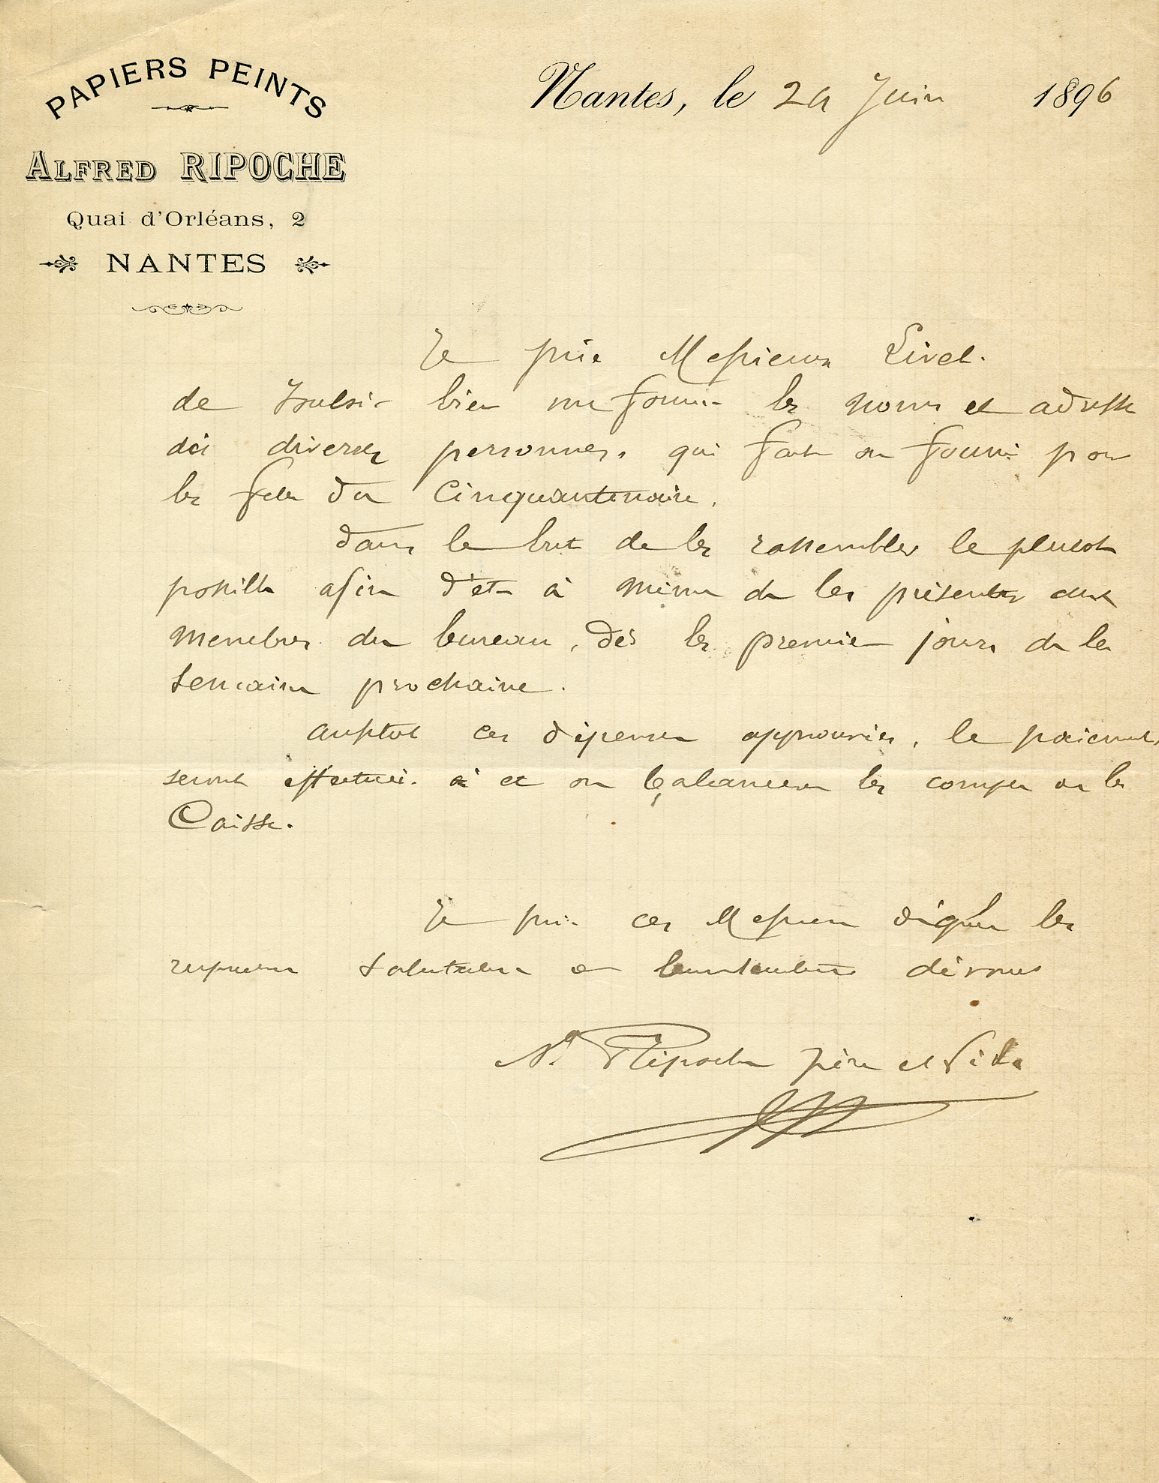 PAPIERS PEINTS
ALFRED RIPOCHE
Quai d'Orléans, 2
NANTES
Nantes, le 24 Juin 1896
Je prie Messieurs
de bien me fournir les noms et adresse
des diverses personnes, qui fait ou fourni pour
les fetes du Cinquantenaire.
dans le but de les rassembler le plutot
possible afin d'etre à même de les présenter aux
Membres du bureau, dès les premier jours de la
semaine prochaine.
aussitot ces dépenses approuvées, le paiement
seront effectués et on balancera les comptes de la
Caisse.
Je prie ces Messieurs les
salutations dévoués
Ripoche père et